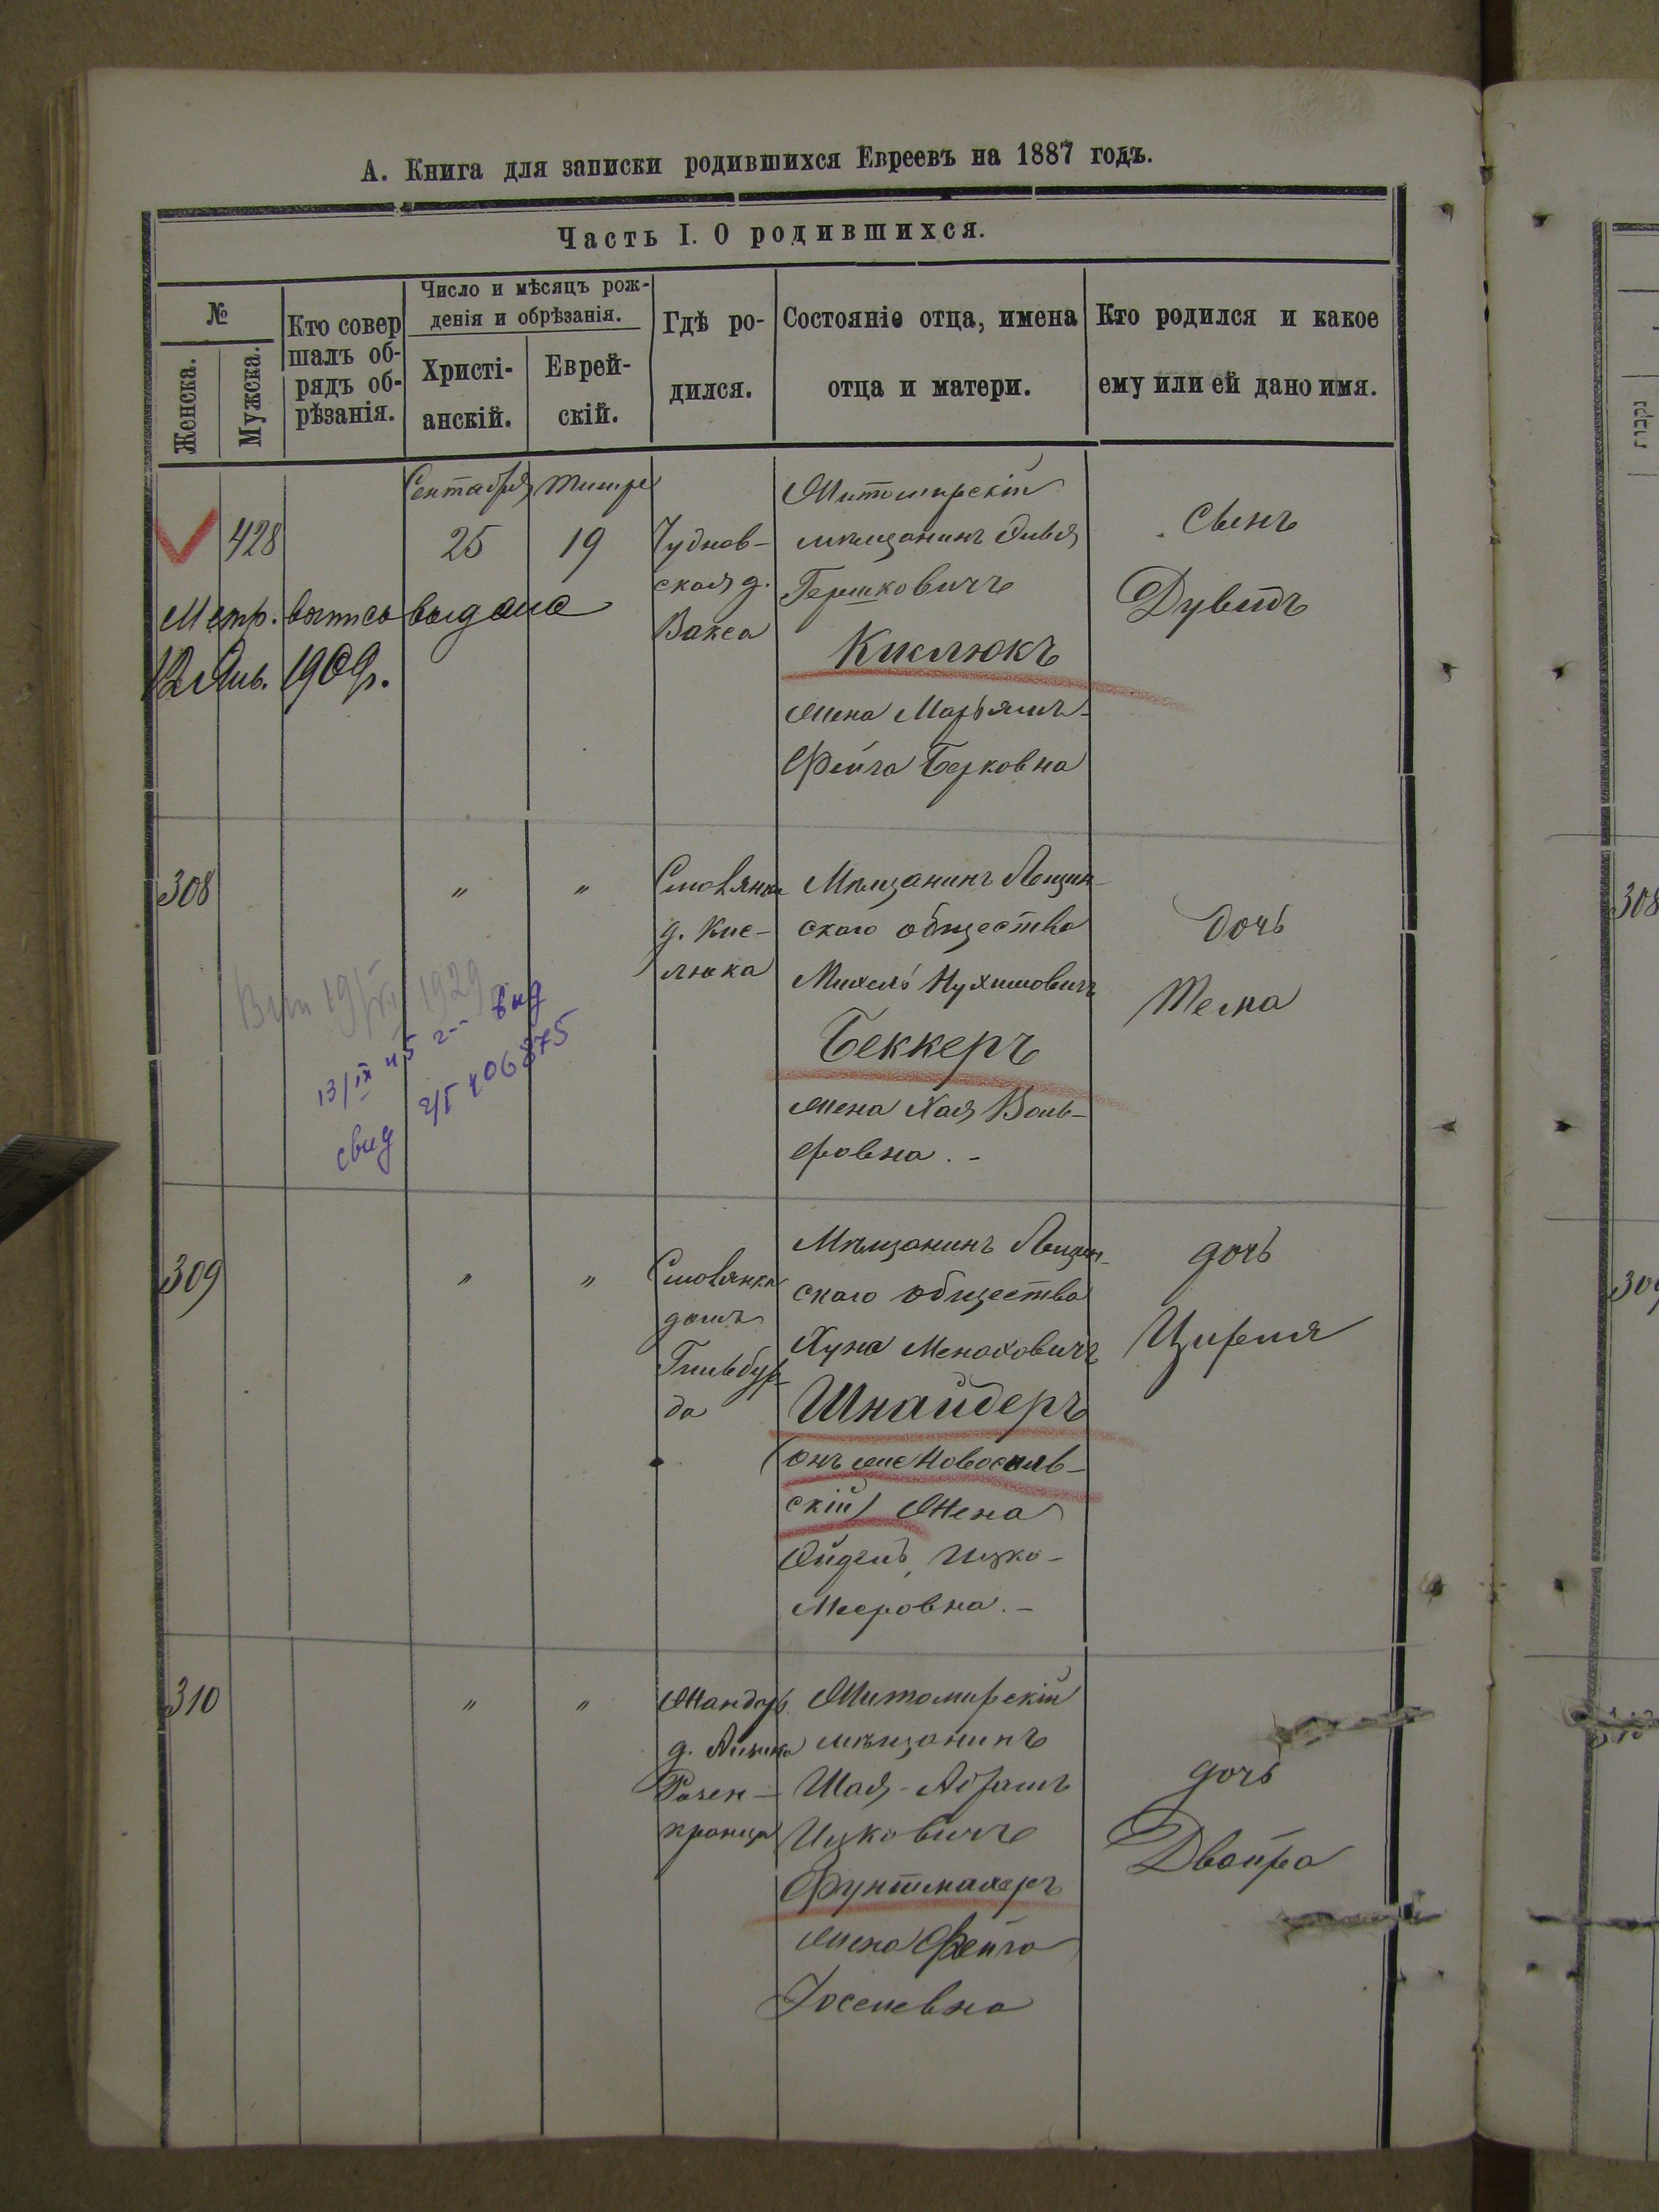 А. Книга для записки родившихся Евреевъ на 1887 годъ.
Часть I. О родившихся.
№
Женска.
Мужска.
Кто совер
шалъ об-
рядъ об-
рѣзанія.
Число и мѣсяцъ рож-
денія и обрѣзанія.
Христі-
анскій.
Еврей-
скій.
Гдѣ ро-
дился.
Состояніе отца, имена
отца и матери.
Кто родился и какое
ему или ей дано имя.
428
Метр. выпись выдана
12 Янв. 1909г.
Сентября
25
Тишре
19
Чуднов-
ская д.
Вакса
Житомирскій
мѣщанинъ
Гершковичъ
Кислюкъ
жена Марьямъ-
Фейга Берковна
Сынъ
Дувидъ
308
"
"
13/IX 45 г-- выд
свид 406875
д. Кис-
люка
Мѣщанинъ Лещин-
скаго общества
Михель Нухимовичъ
Беккеръ
жена Хая Воль-
фовна. -
Дочь
Тема
309
"
"
домъ
Гильбур-
да
Мѣщанинъ Лещин-
скаго общества
Хуна
Шнайдеръ
(онъ же Новосель-
скій) Жена
Ойдель Ицко-
Мееровна. -
дочь
310
"
"
Жандар.
д.
Розен-
кранца
Житомирскій
мѣщанинъ
Шая-Абрамъ
Ицковичъ
Фунтмахеръ
жена Фейга
Іосепевна
дочь
Двойра
308
309